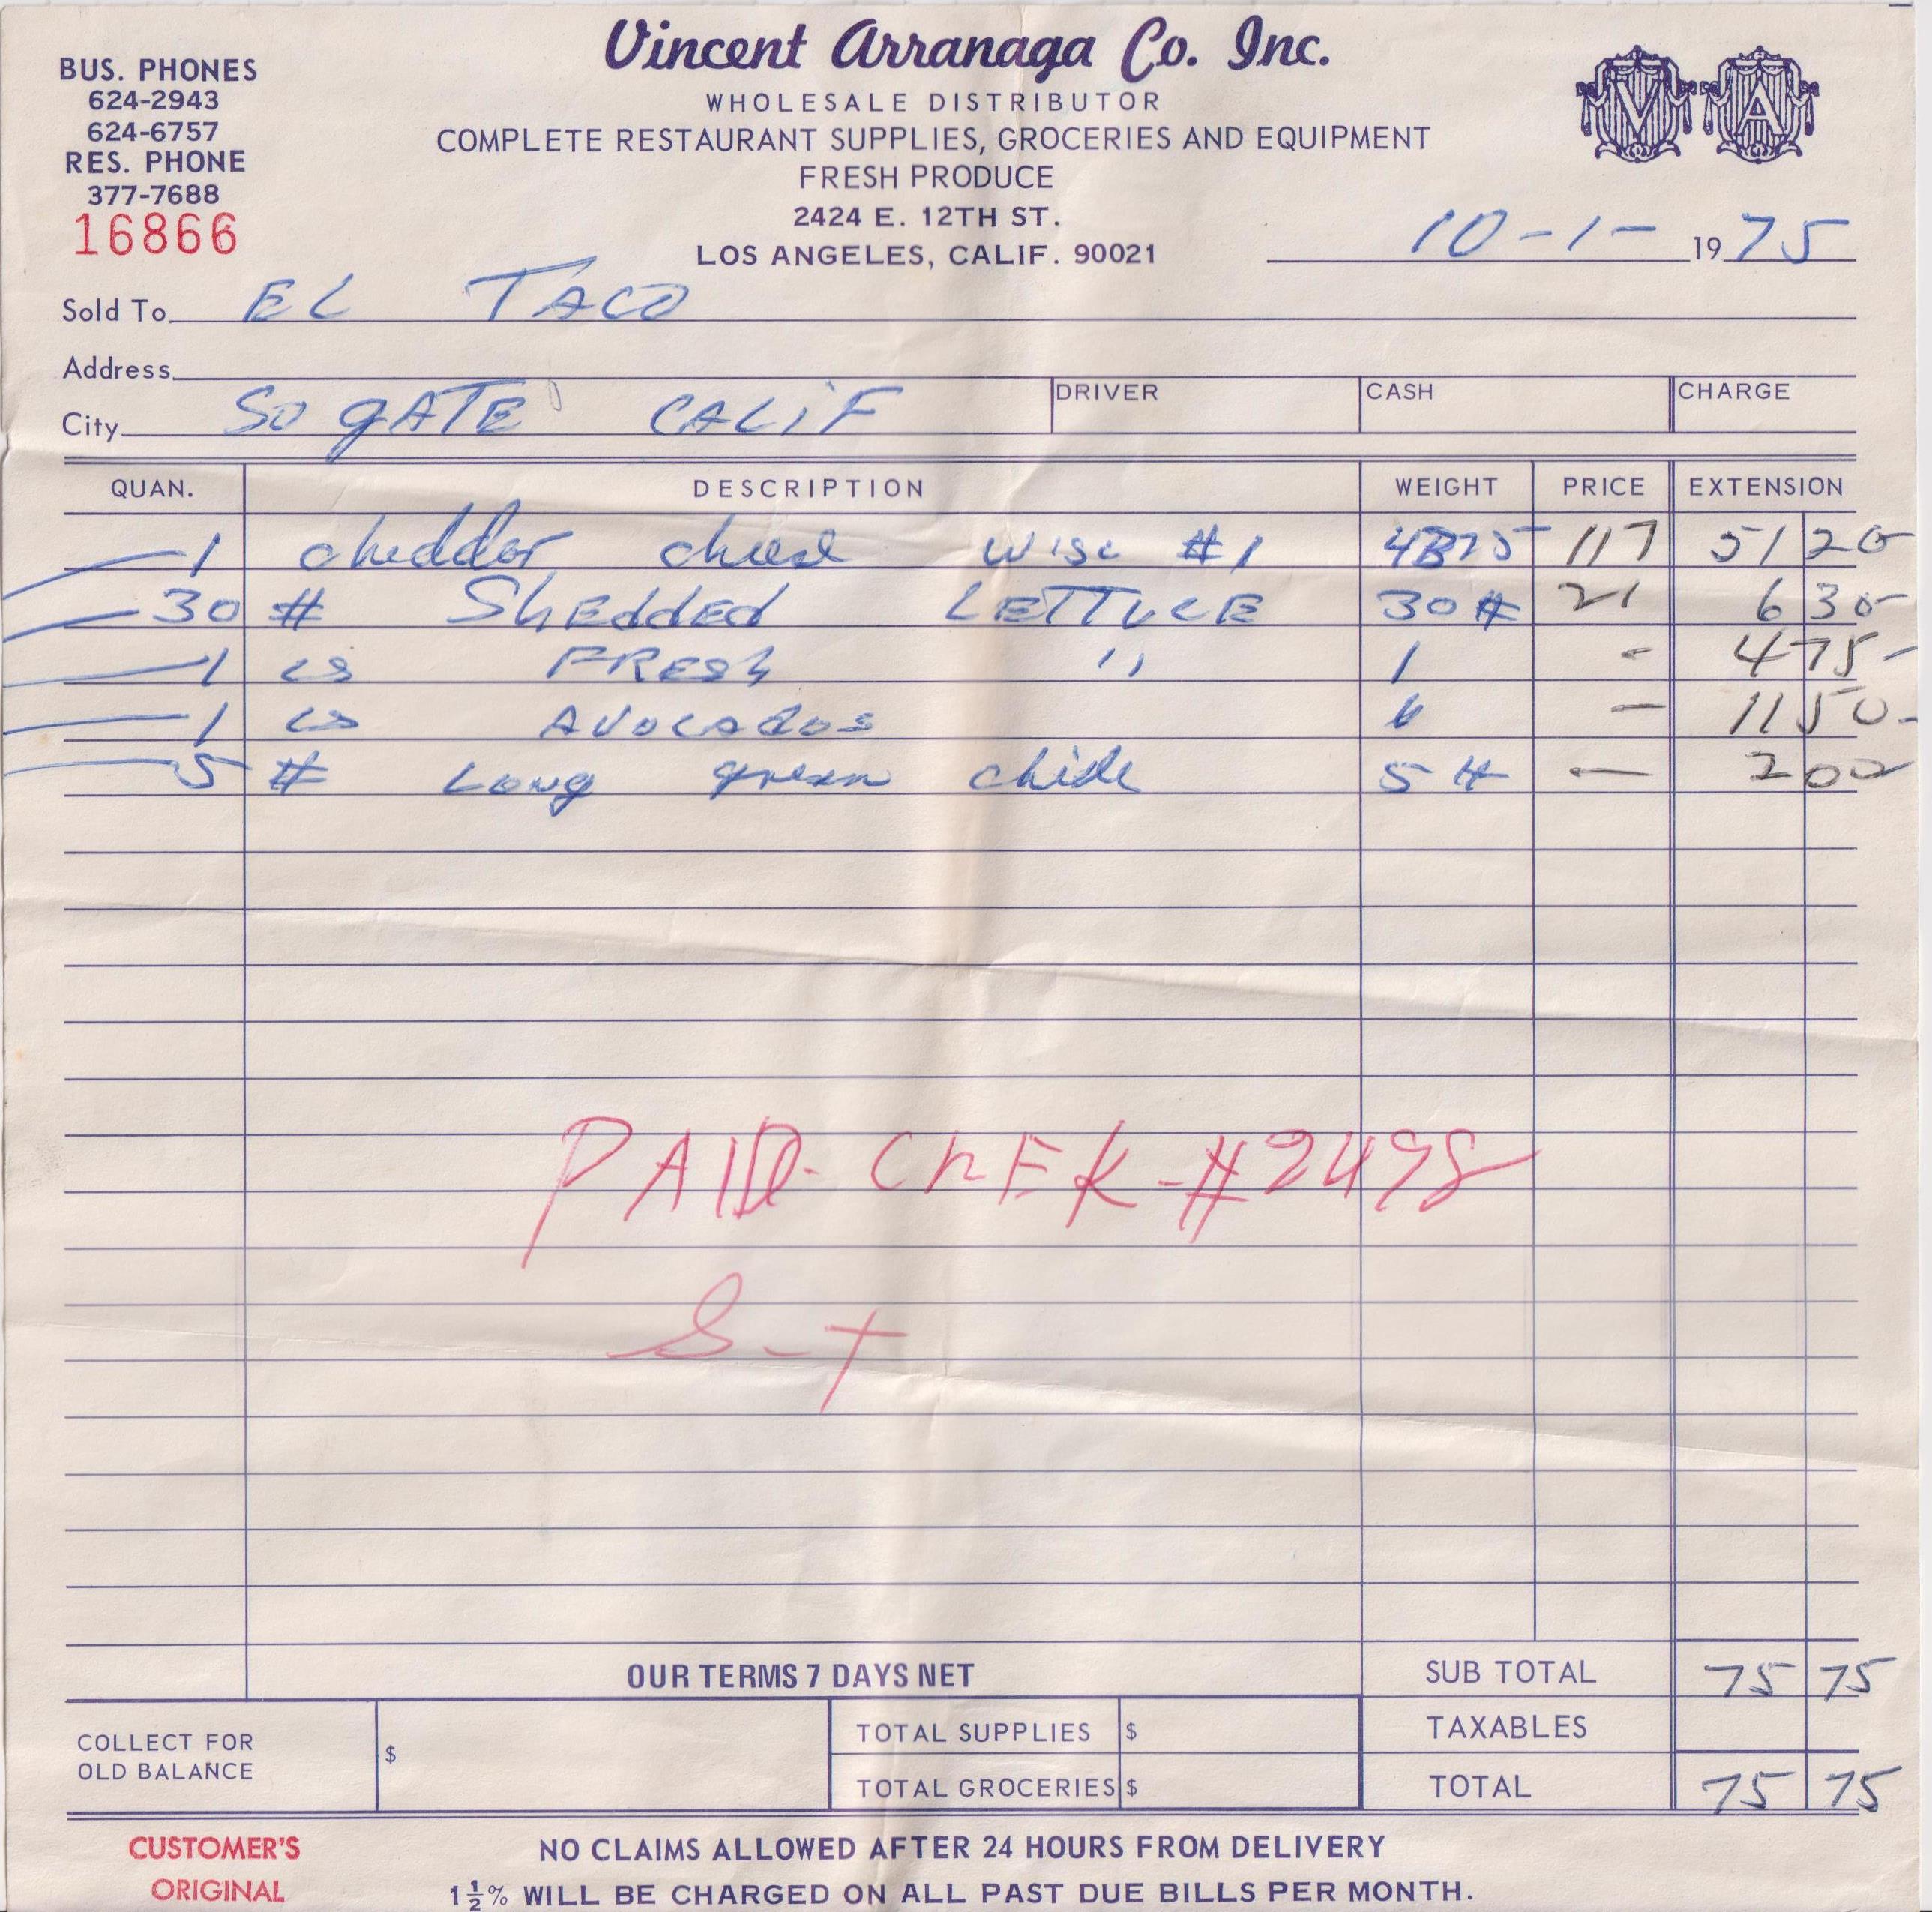 Vincent Arranaga Co. Inc.
WHOLESALE DISTRIBUTOR
COMPLETE RESTAURANT SUPPLIES, GROCERIES AND EQUIPMENT
FRESH PRODUCE
2424 E. 12TH ST.
LOS ANGELES, CALIF. 90021
BUS. PHONES
624-2943
624-6757
RES. PHONE
377-7688
16866
V A
10-1- 1975
Sold To EL TACO
Address
City SO gATE CALIF
DRIVER CASH CHARGE
QUAN. DESCRIPTION WEIGHT PRICE EXTENSION
1 cheddar cheese Wisc #1 4375 117 51 20
30 # ShEddEd LETTUCE 30# 21 6 30
1 cs FRESh " 1 - 4 75
1 cs AVOCADOS - 11 50
5 # Long green chile 5# - 2 00
PAID- ChEK-#2498
OUR TERMS 7 DAYS NET
SUB TOTAL 75 75
COLLECT FOR OLD BALANCE $
TOTAL SUPPLIES $
TAXABLES
TOTAL GROCERIES $
TOTAL 75 75
CUSTOMER'S ORIGINAL
NO CLAIMS ALLOWED AFTER 24 HOURS FROM DELIVERY
1½% WILL BE CHARGED ON ALL PAST DUE BILLS PER MONTH.